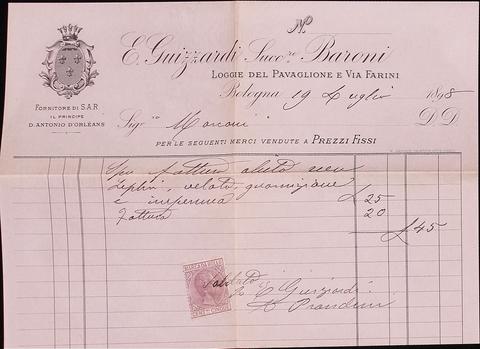 Nº
E. Guizzardi Succ.re Baroni
Loggie del Pavaglione e Via Farini
Fornitore di S.A.R.
il Principe
D. Antonio d'Orléans
Bologna 19 Luglio 1898
Sig.ra Marconi DD
per le seguenti merci vendute a Prezzi Fissi
Spu fattura abito
Zephir, velata, guarnizione
e £ 25
Fattura 20
£ 45
Marca da Bollo
Saldato
E. Guizzardi
Cent. Cinque